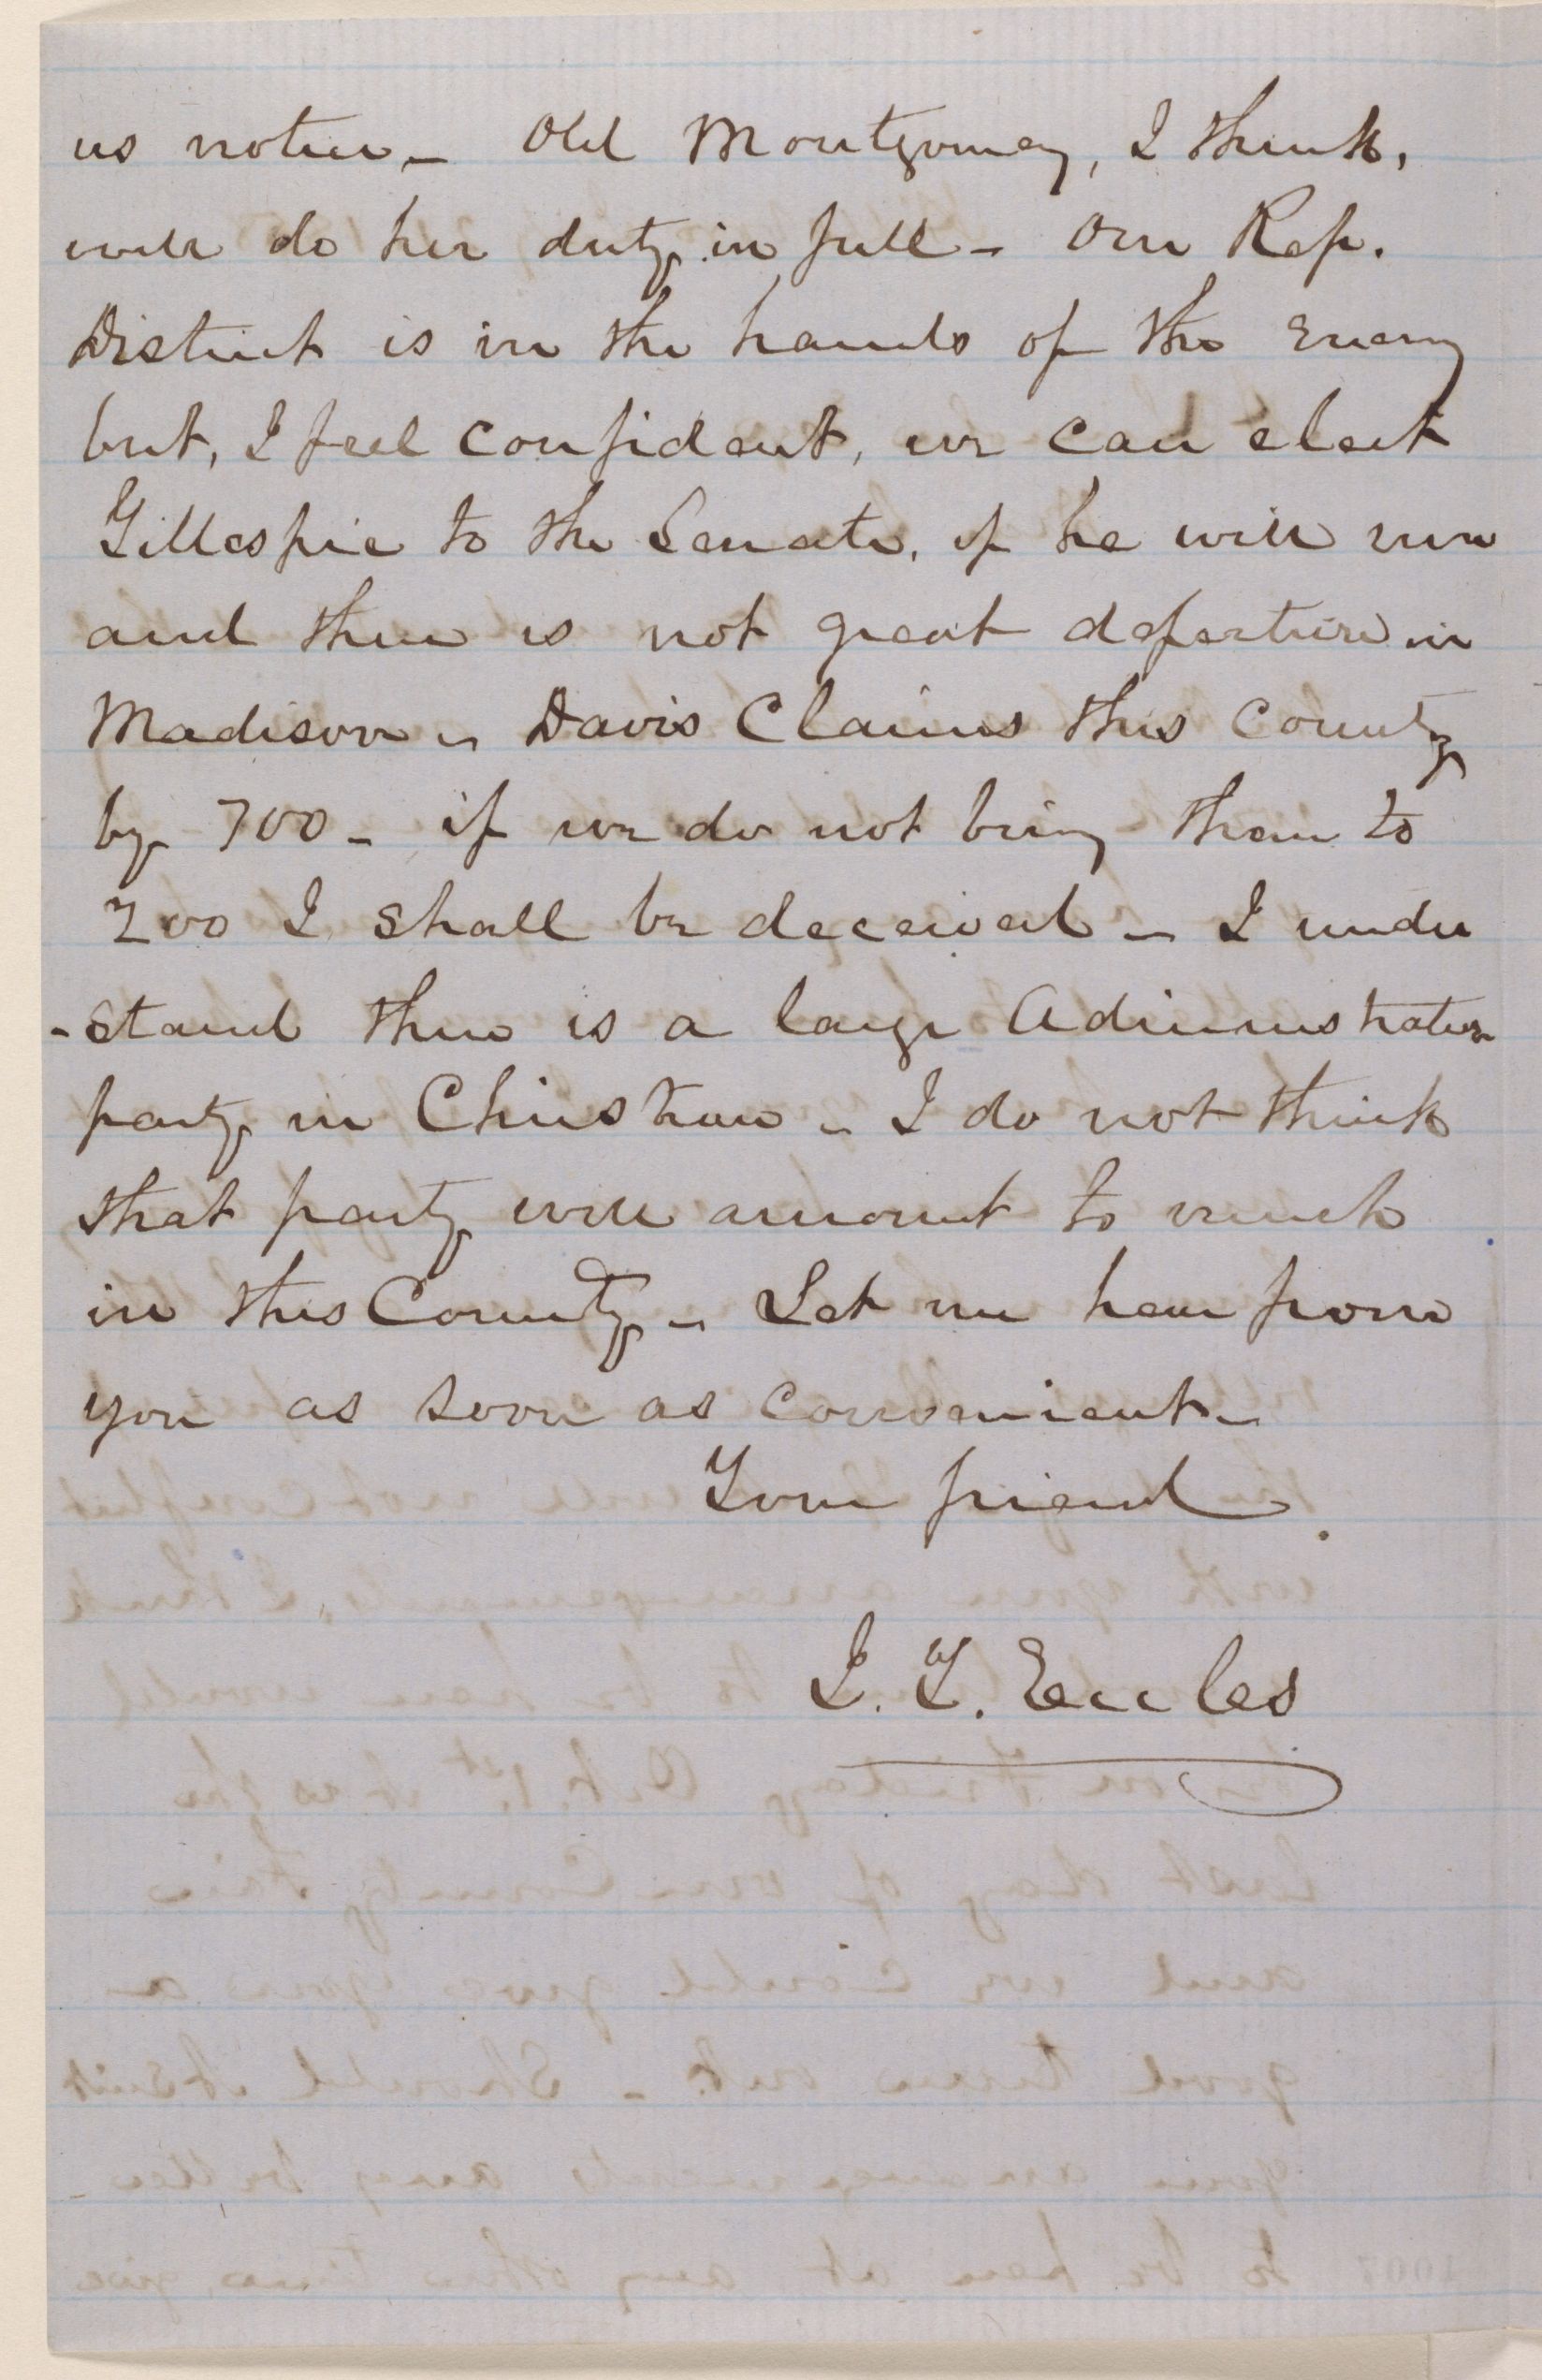 us notice - Old Montgomery, I think,
will do her duty in full - Our Rep.
District is in the hands of the Enemy
but, I feel confident, we can elect
Gillespie to the Senate, if he will run
and there is not great defection in
Madison - Davis Claims this County
by 700 - if we do not bring them to
200 I shall be deceived - I under
-stand there is a large Administration
party in Christian - I do not think
that party will amount to much
in this County - Let me hear from
you as soon as convenient -
Your friend
J. T. Eccles